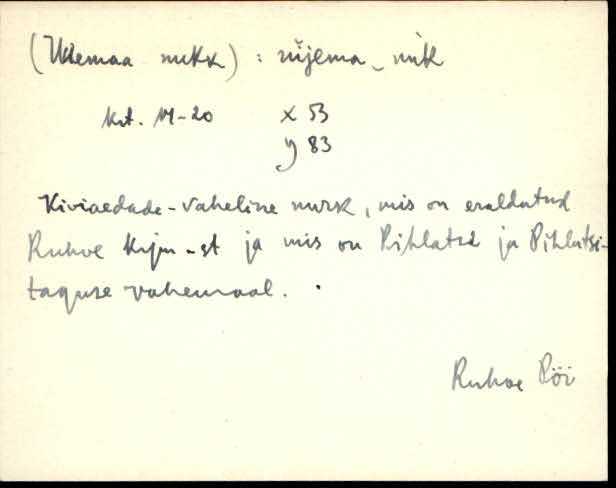 (Uuemaa nukk) : nüjema_nuk
krt. M-20 x 53
y 83
Kiviaedade-vaheline nurk, mis on eraldatud
Ruhve krjm-st ja mis on Pihlatsi ja Pihlatsi-
taguse vahemaal.
Ruhve Pöi